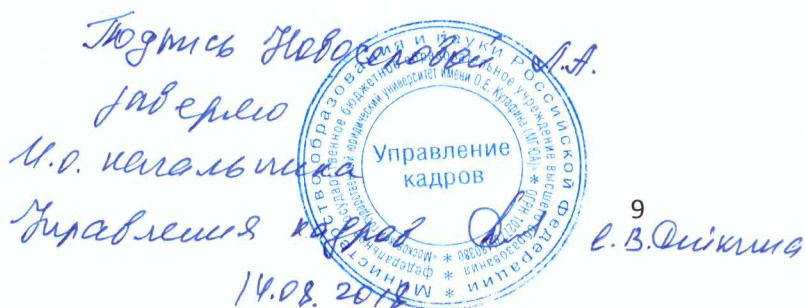 Подпись Новоселовой Л.А.
заверяю
И.о. начальника
Управления кадров
14.08.2018
Управление
кадров
Министерство образования и науки Российской Федерации *
федеральное государственное бюджетное образовательное учреждение высшего образования *
Московский государственный юридический университет имени О.Е. Кутафина (МГЮА)» * ОГРН
9